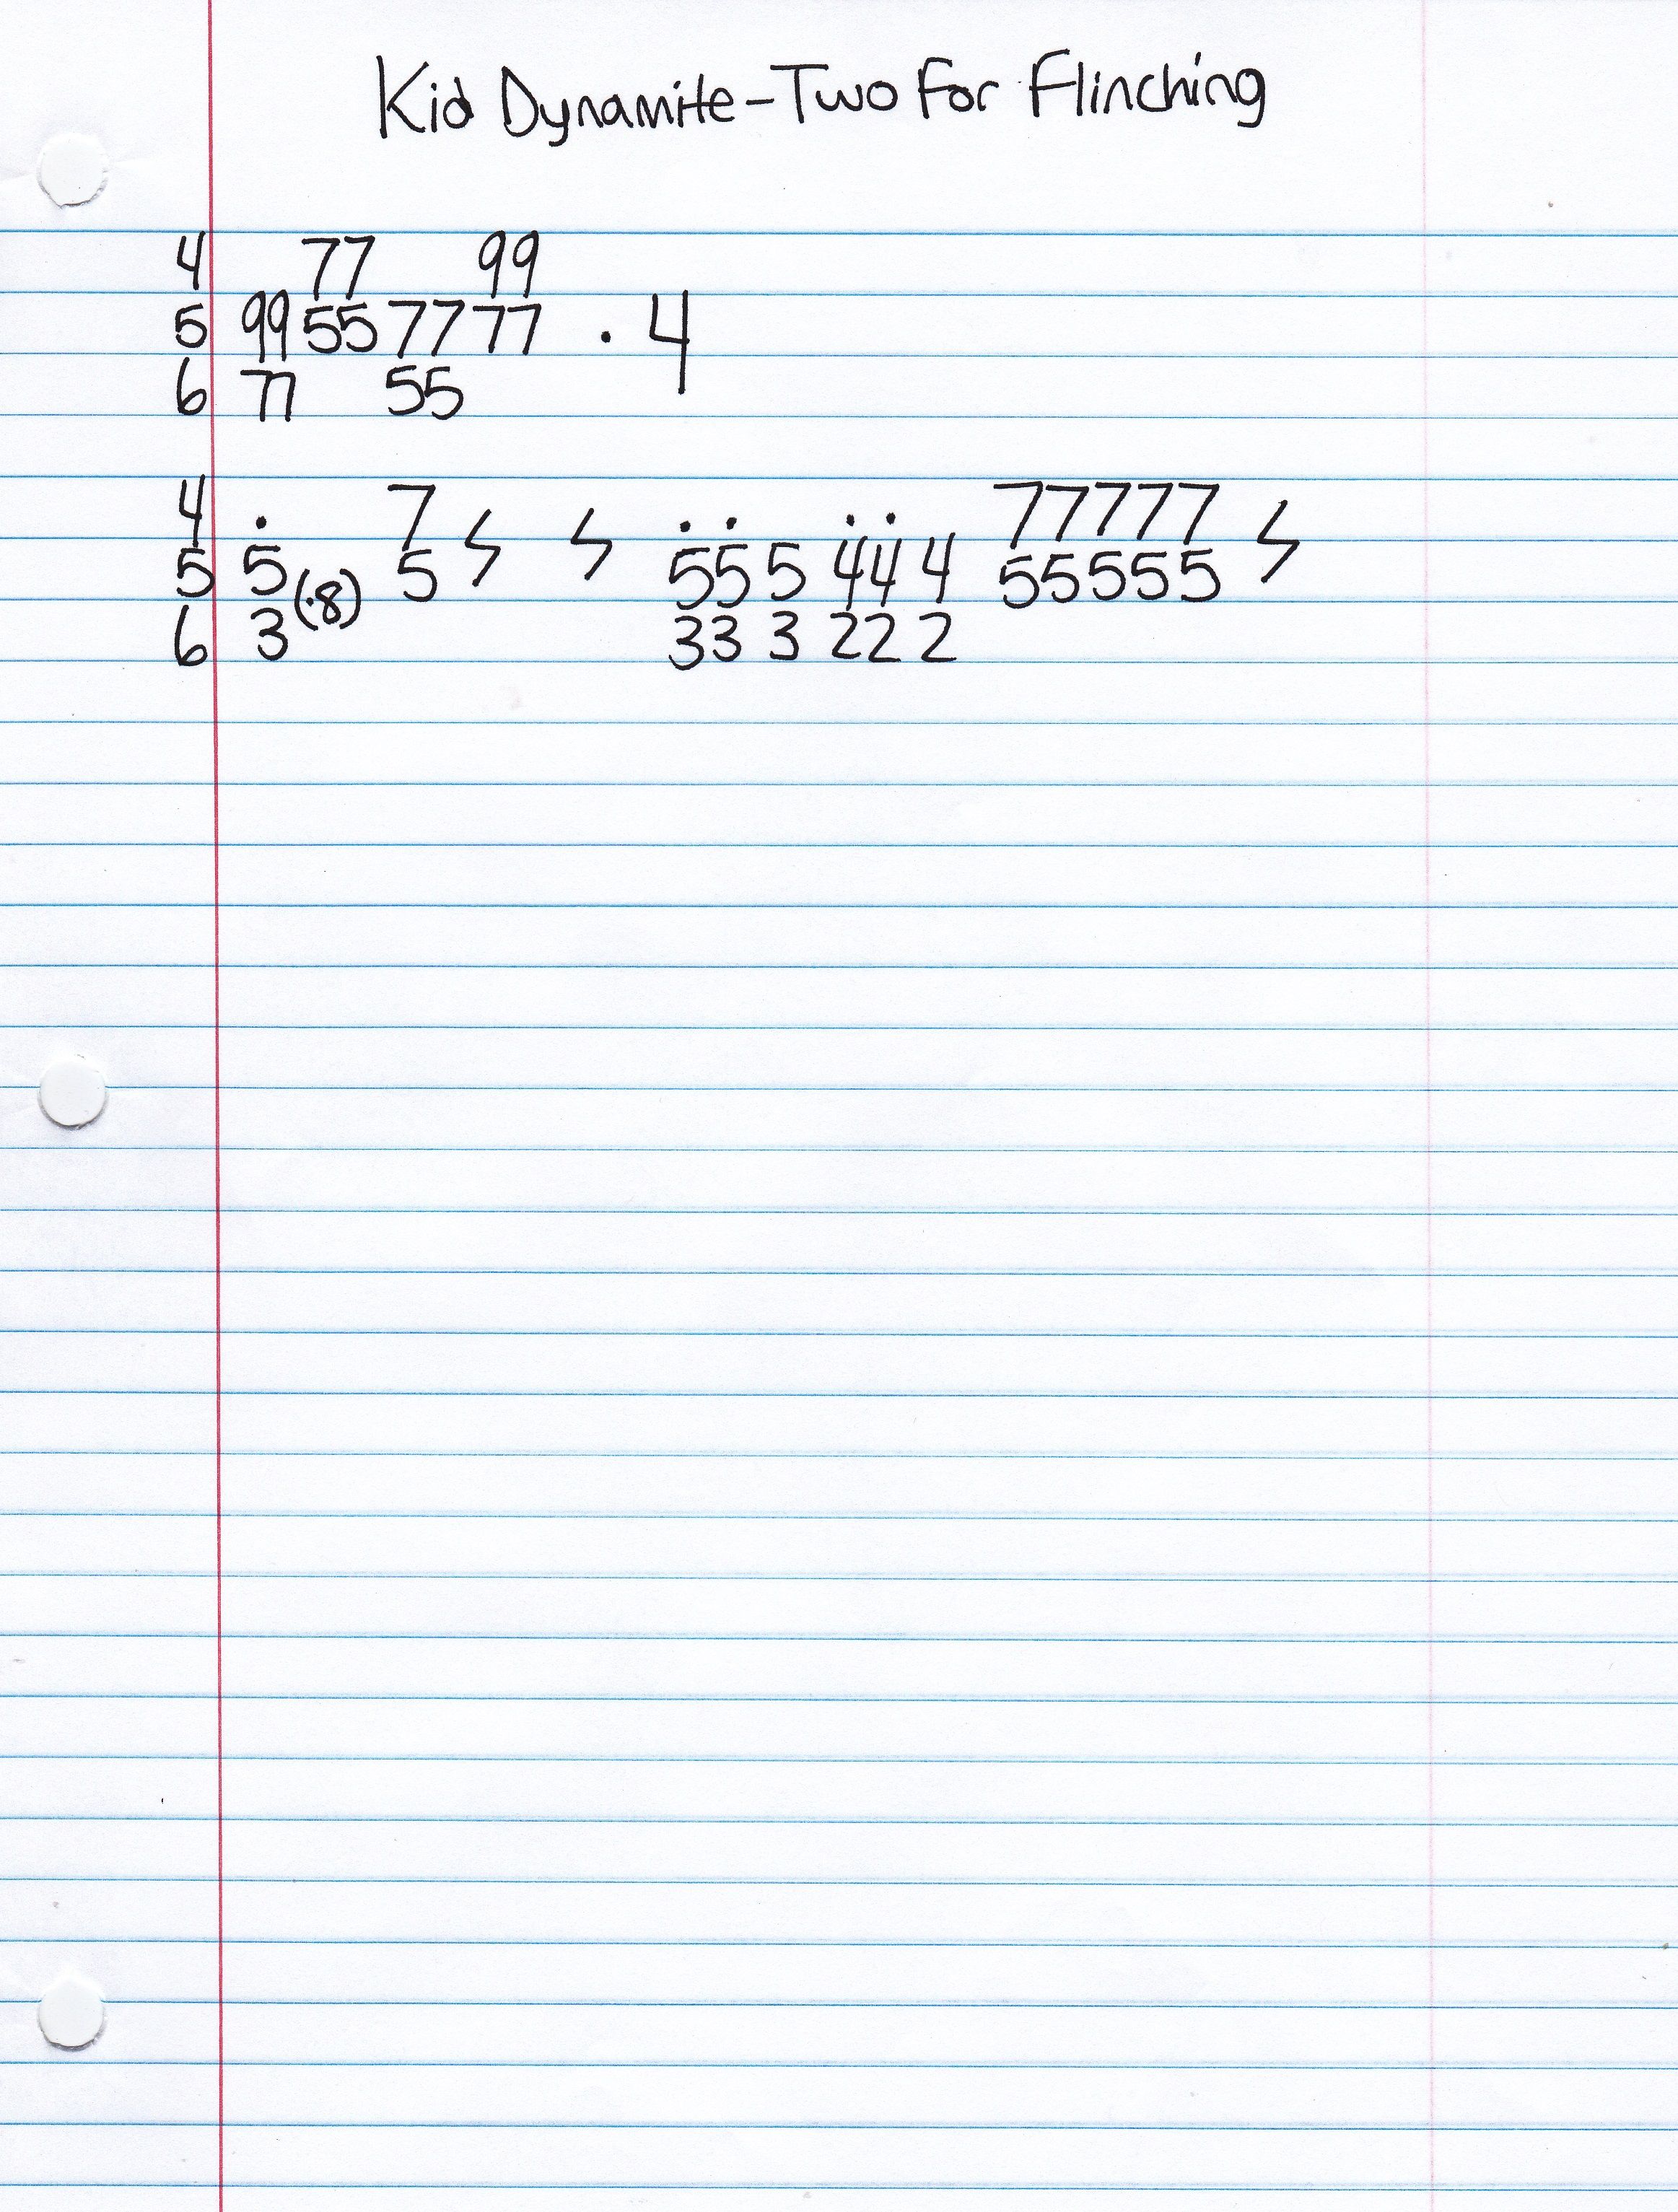 Kid Dynamite - Two For Flinching
4 77 99
5 99 55 77 77 · 4
6 77 55
4 . 7 . . . . 77777
5 5 (·8) 5 ϟ ϟ 55 5 44 4 55555 ϟ
6 3 33 3 22 2